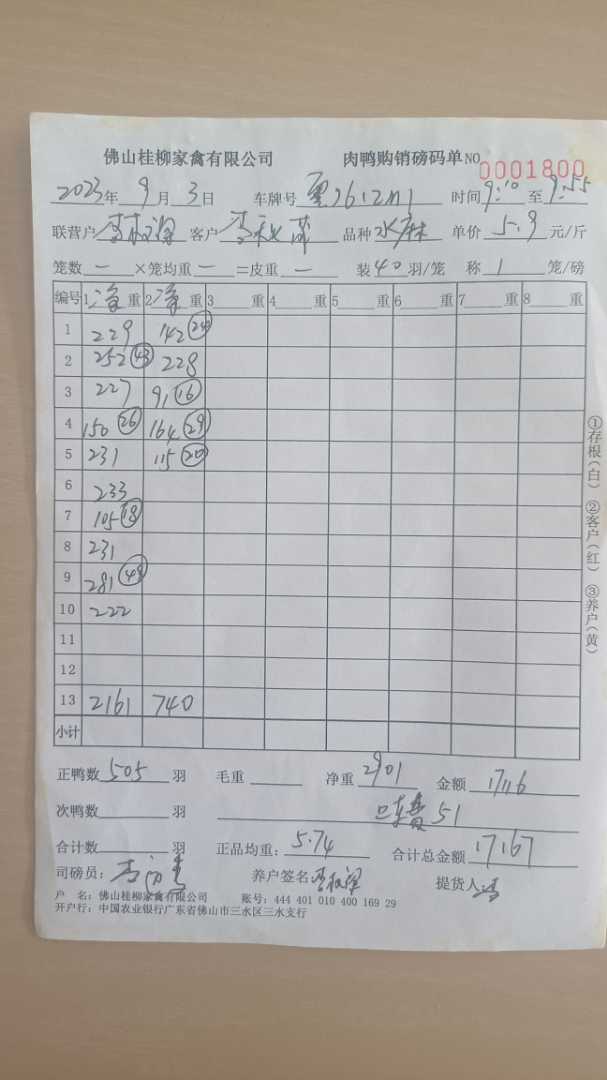 佛山桂柳家禽有限公司 肉鸭购销磅码单 NO 0001800
2023年 9月 3日 车牌号 时间 9:10 至 9:55
联营户 客户 品种 水麻 单价 5.9 元/斤
笼数 一 ×笼均重 一 =皮重 一 装 40 羽/笼 称 1 笼/磅
编号 1 净 重 2 净 重 3 重 4 重 5 重 6 重 7 重 8 重
1 229 142 24
2 252 43 228
3 227 91 16
4 150 26 164 29
5 231 115 20
6 233
7 105 18
8 231
9 281 49
10 222
11
12
13 2161 740
小计
正鸭数 505 羽 毛重 净重 2901 金额 17116
次鸭数 羽 51
合计数 羽 正品均重: 5.74 合计总金额 17167
司磅员: 养户签名: 提货人
户 名: 佛山桂柳家禽有限公司 账号: 444 401 010 400 169 29
开户行: 中国农业银行广东省佛山市三水区三水支行
①存根(白) ②客户(红) ③养户(黄)